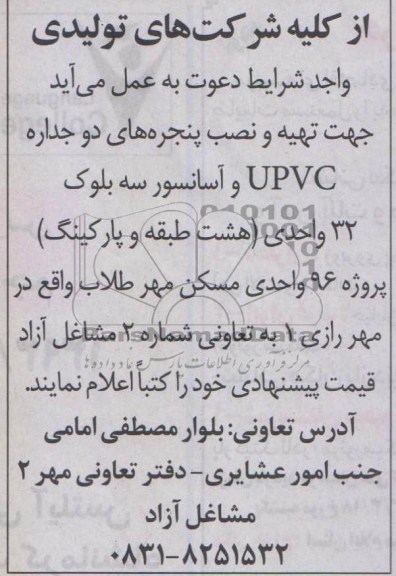 از کلیه شرکت‌های تولیدی
واجد شرایط دعوت به عمل می‌آید
جهت تهیه و نصب پنجره‌های دو جداره
UPVC و آسانسور سه بلوک
۳۲ واحدی (هشت طبقه و پارکینگ)
پروژه ۹۶ واحدی مسکن مهر طلاب واقع در
مهر رازی ۱ به تعاونی شماره ۲ مشاغل آزاد
قیمت پیشنهادی خود را کتبا اعلام نمایند.
آدرس تعاونی: بلوار مصطفی امامی
جنب امور عشایری- دفتر تعاونی مهر ۲
مشاغل آزاد
۰۸۳۱-۸۲۵۱۵۳۲